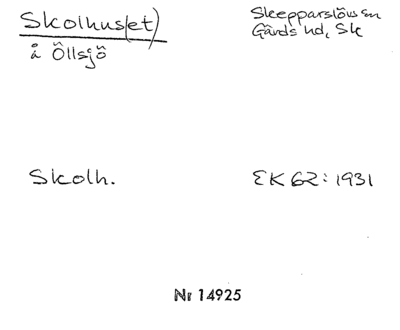 Skolhus(et)
å Öllsjö
Skepparslövs sn
Gärds hd, Sk
Skolh.
EK 62: 1931
Nr 14925